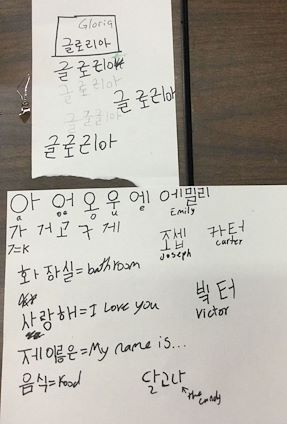 Gloria
글로리아
글로리아
글로리아
글로리아
글로리아
글로리아
아 어 옹 우 엥 에밀리
a oe u e Emily
가 거 고 구 게
ㄱ=K
조셉 카터
Joseph carter
화장실=bathroom
사랑해=I love you
빅터
Victor
제 이름은=My name is...
음식=Food
달고나
the candy